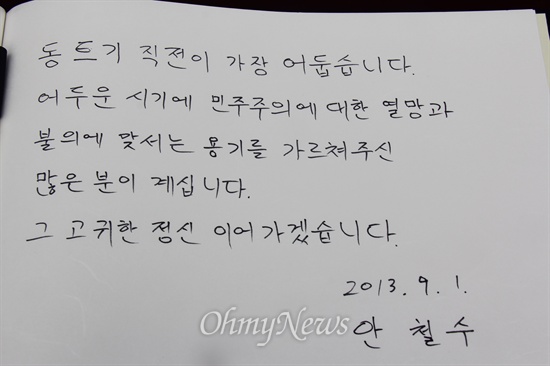 동 트기 직전이 가장 어둡습니다.
어두운 시기에 민주주의에 대한 열망과
불의에 맞서는 용기를 가르쳐주신
많은 분이 계십니다.
그 고귀한 정신 이어가겠습니다.
2013. 9. 1.
OhmyNews
안 철 수